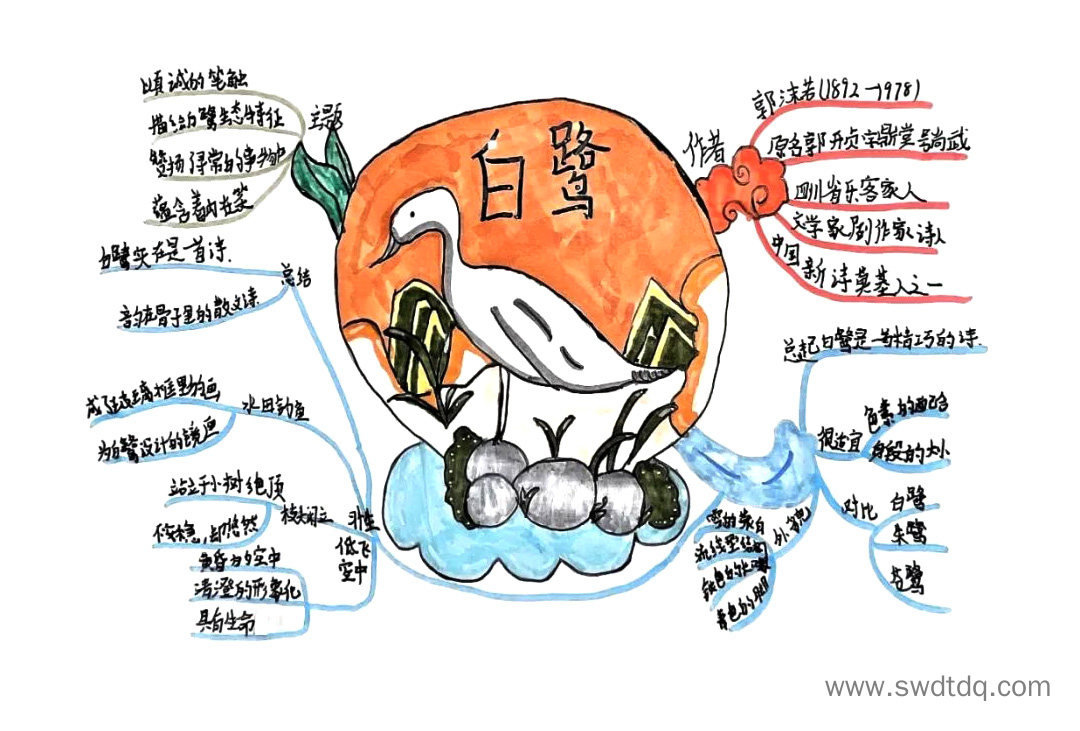 白鹭
作者
郭沫若(1892-1978)
原名郭开贞字鼎堂号尚武
四川省乐客家人
文学家剧作家诗人
中国新诗奠基人之一
总起白鹭是一首精巧的诗.
很适宜
色素的配合
身段的大小
对比
白鹭
朱鹭
苍鹭
外貌
雪的蓑白
流线型结构
青色的脚
低飞空中
黄昏的空中
清澄的形象化
具有生命
枝头闲立
站立于小树绝顶
不安稳,却悠然
水田钓鱼
为白鹭设计的镜匣
总结
白鹭实在是一首诗.
韵在骨子里的散文诗.
主题
诚的笔触
描绘白鹭生态特征
赞扬了寻常的事物中
蕴含着的
www.swdtdq.com